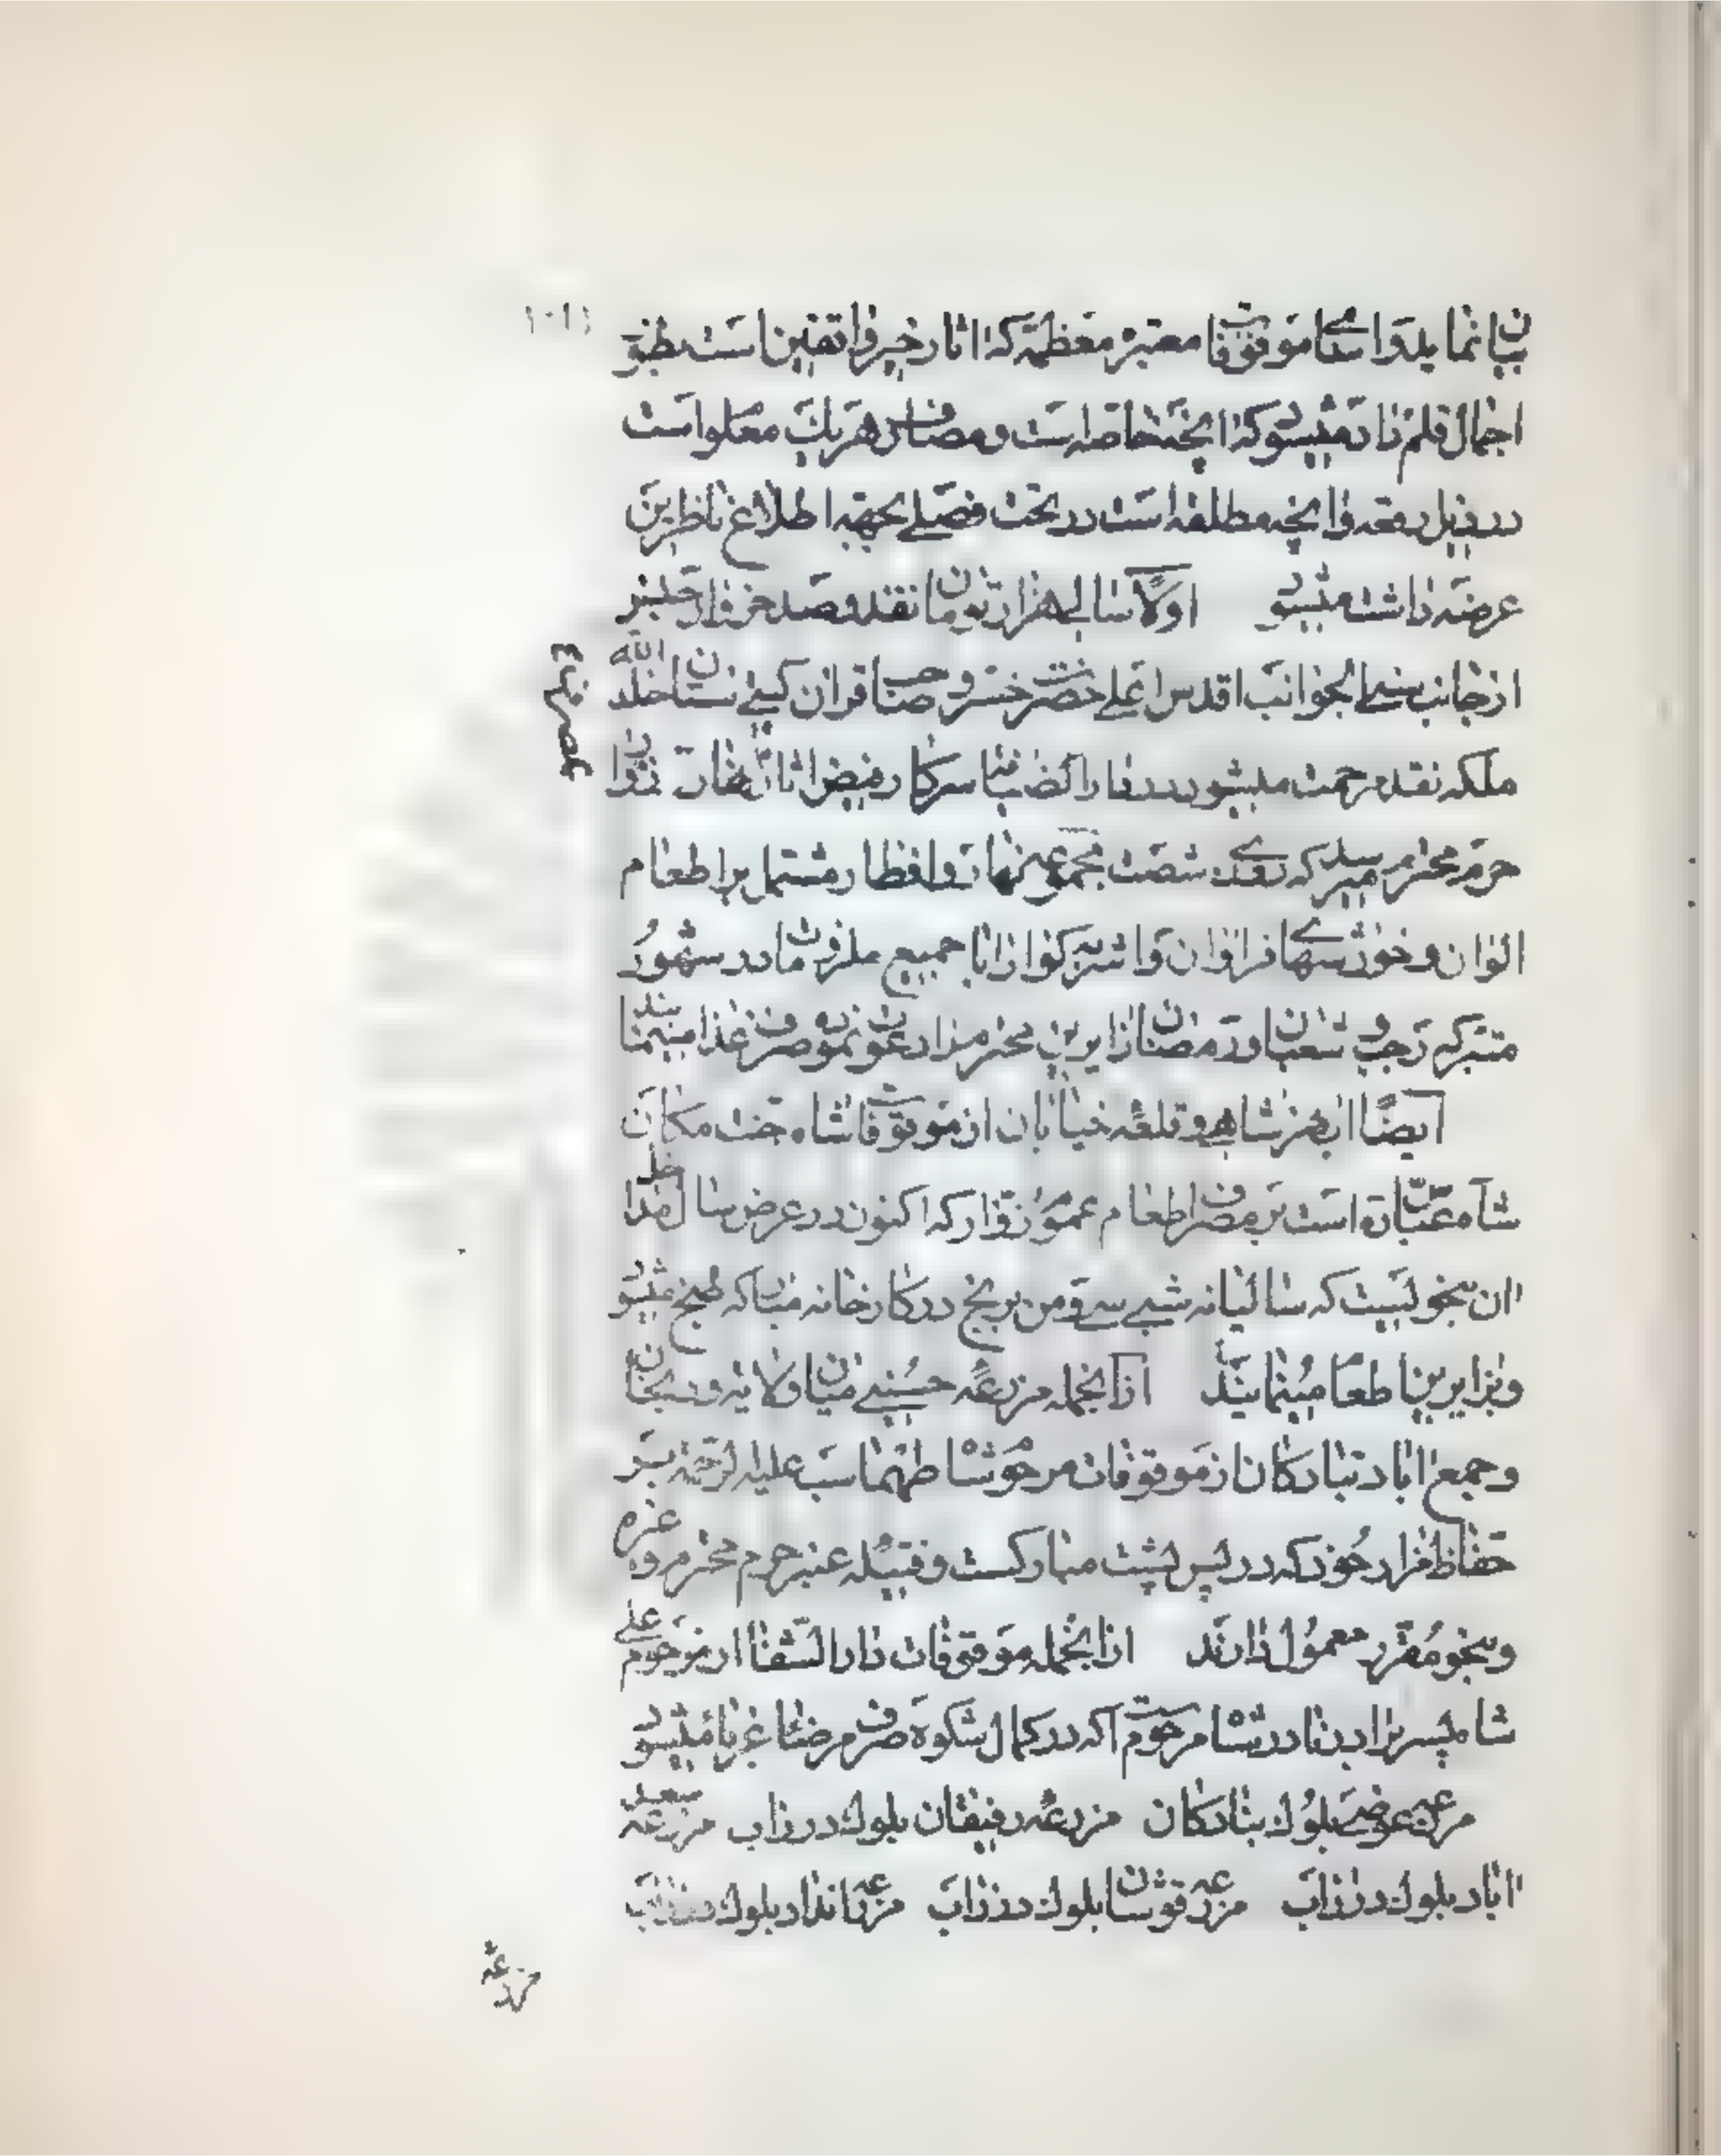 بیان نماید و اسامی موقوفات معتبره معظمه که اثار خیر واقفین است بطور
اجمال قلم داد میشود که انچه خاصه است و مصارف هر یک معلوم است
در ذیل رقعه و انچه مطلقه است در تحت فصلی بجهه اطلاع ناظرین
عرضه داشته میشود اولا سالی هزار تومان نقد و صد خروار جنس
از جانب سنی الجوانب اقدس اعلی حضرت خسرو صاحبقران گیتی ستان خلد الله
ملکه نقد مرحمت میشود در دار الضیافه سرکار فیض اثار زوار
حرم محترم میرسد که شصت مجموعه نهار و افطار مشتمل بر اطعام
الوان و خورشهای فراوان و اشربه کوارا با جمیع ملزومات در شهور
متبرکه رجب و شعبان و رمضان زایرین محترم را دعوت نموده صرف غذا مینمایند
ایضا نهر شاهی و قلعه خیابان از موقوفات شاه جنت مکان
شاه عباس است بر مصرف اطعام عموم زوار که اکنون در عرض سال مداخل
ان بنحویست که سالیانه شبی سی من برنج در کارخانه مبارکه طبخ میشود
و بزایرین اطعام مینمایند از انجمله مزرعه حسینی میان ولایه و
و جمع اباد تبادکان از موقوفات مرحوم شاه طهماسب علیه الرحمه بر
حفاظ مزار خود که در پس پشت مبارکست و فتیله عنبر حرم محترم
و بنحو مقرر معمول دارند از انجمله موقوفات دار الشفا از مرحوم علی
شاه پسر برادر نادر شاه مرحوم است که در کمال شکوه صرف مرضای غربا میشود
مزرعه عوضی بلوک تبادکان مزرعه رفیقان بلوک درزاب مزرعه سعید
اباد بلوک درزاب مزرعه قوشان بلوک درزاب مزرعه انداد بلوک درزاب
مزرعه